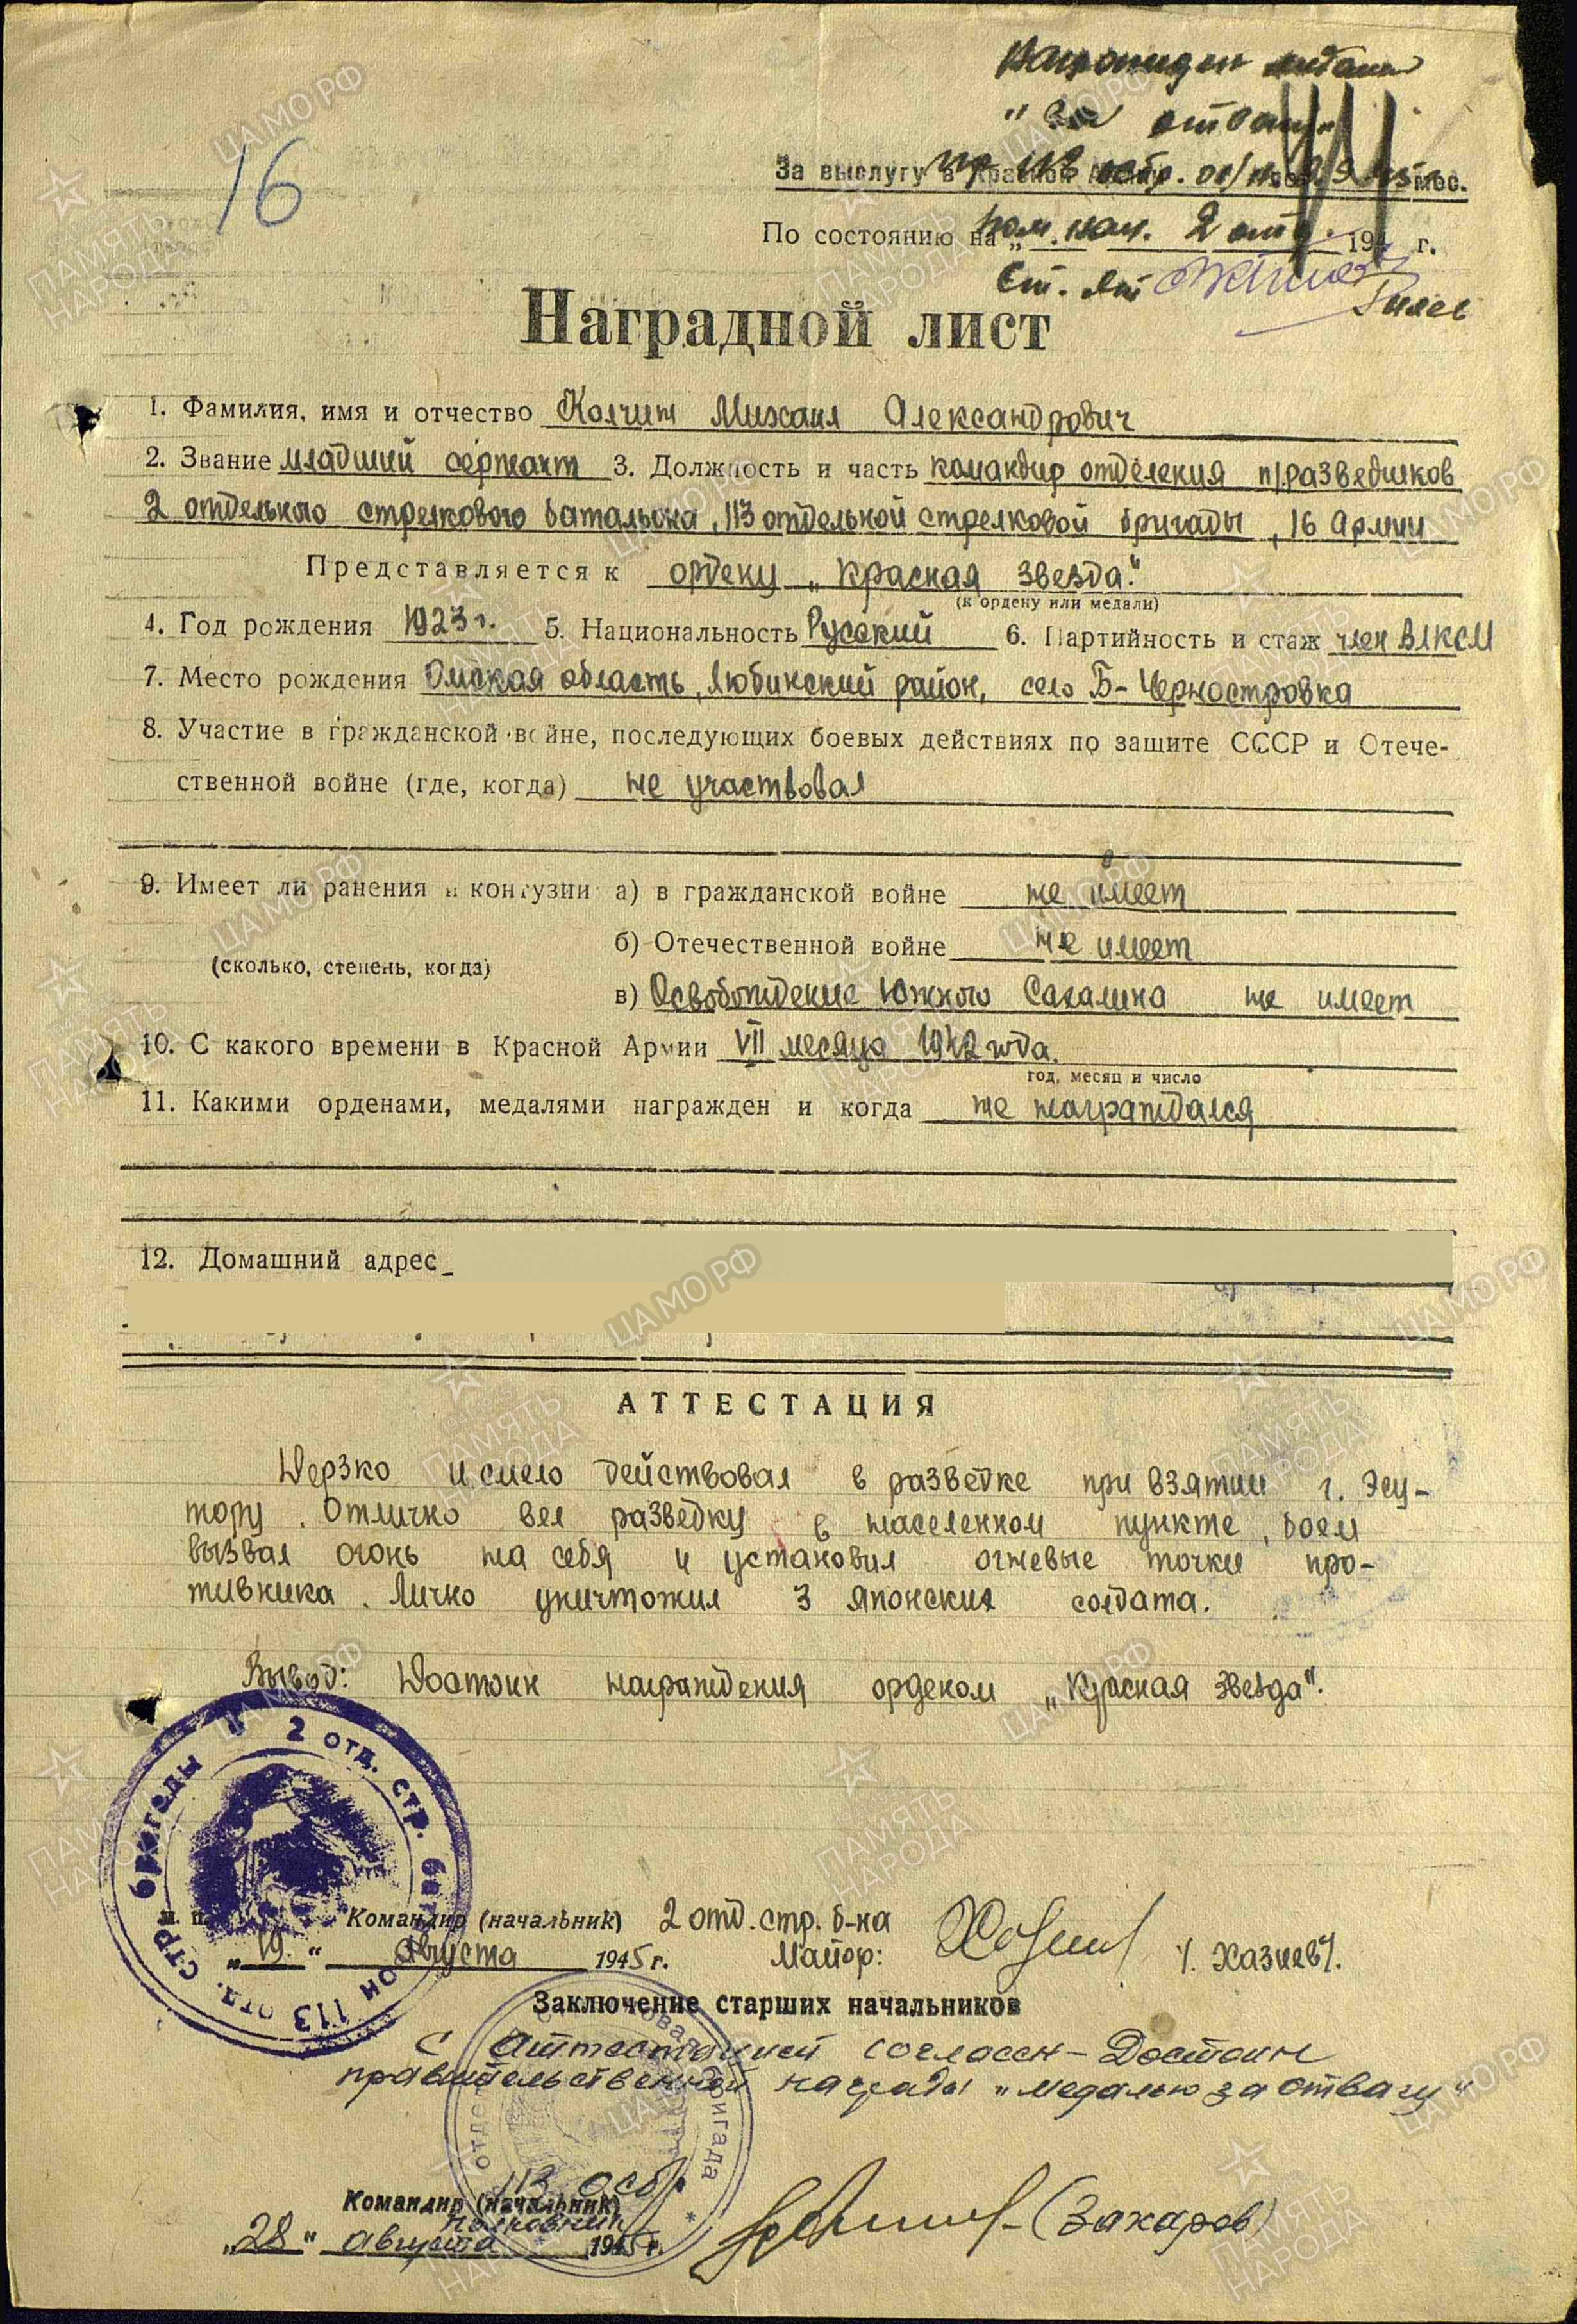 Награжден медалью
"За отвагу"
16
За выслугу в Красной
пр. 113 осбр.
По состоянию на " 194 г.
пом. нач. 2 отд.
Ст. л-т
Наградной лист
1. Фамилия, имя и отчество Колчин Михаил Александрович
2. Звание младший сержант 3. Должность и часть командир отделения п/разведчиков
2 отдельного стрелкового батальона, 113 отдельной стрелковой бригады, 16 Армии
Представляется к ордену „Красная звезда".
(к ордену или медали)
4. Год рождения 1923 г. 5. Национальность Русский 6. Партийность и стаж член ВЛКСМ
7. Место рождения Омская область, Любинский район, село Б-Черностровка
8. Участие в гражданской войне, последующих боевых действиях по защите СССР и Отече-
ственной войне (где, когда) не участвовал
9. Имеет ли ранения и контузии а) в гражданской войне не имеет
б) Отечественной войне не имеет
(сколько, степень, когда)
в) Освобождение Южного Сахалина не имеет
10. С какого времени в Красной Армии VII месяца 1942 года.
год, месяц и число
11. Какими орденами, медалями награжден и когда не награждался
12. Домашний адрес
АТТЕСТАЦИЯ
Дерзко и смело действовал в разведке при взятии г. Эсу-
тору. Отлично вел разведку в населенном пункте, боем
вызвал огонь на себя и установил огневые точки про-
тивника. Лично уничтожил 3 японских солдата.
Вывод: Достоин награждения орденом „Красная звезда".
2 отд. стр. батальон 113 отд. стр. бригады
Командир (начальник) 2 отд. стр. б-на
„19" августа 1945 г. Майор: /. Хазиев/.
Заключение старших начальников
С аттестацией согласен - Достоин
правительственной награды "медалью за отвагу"
113 осбр
Командир (начальник)
полковник
„28" августа 1945 г. (Захаров)